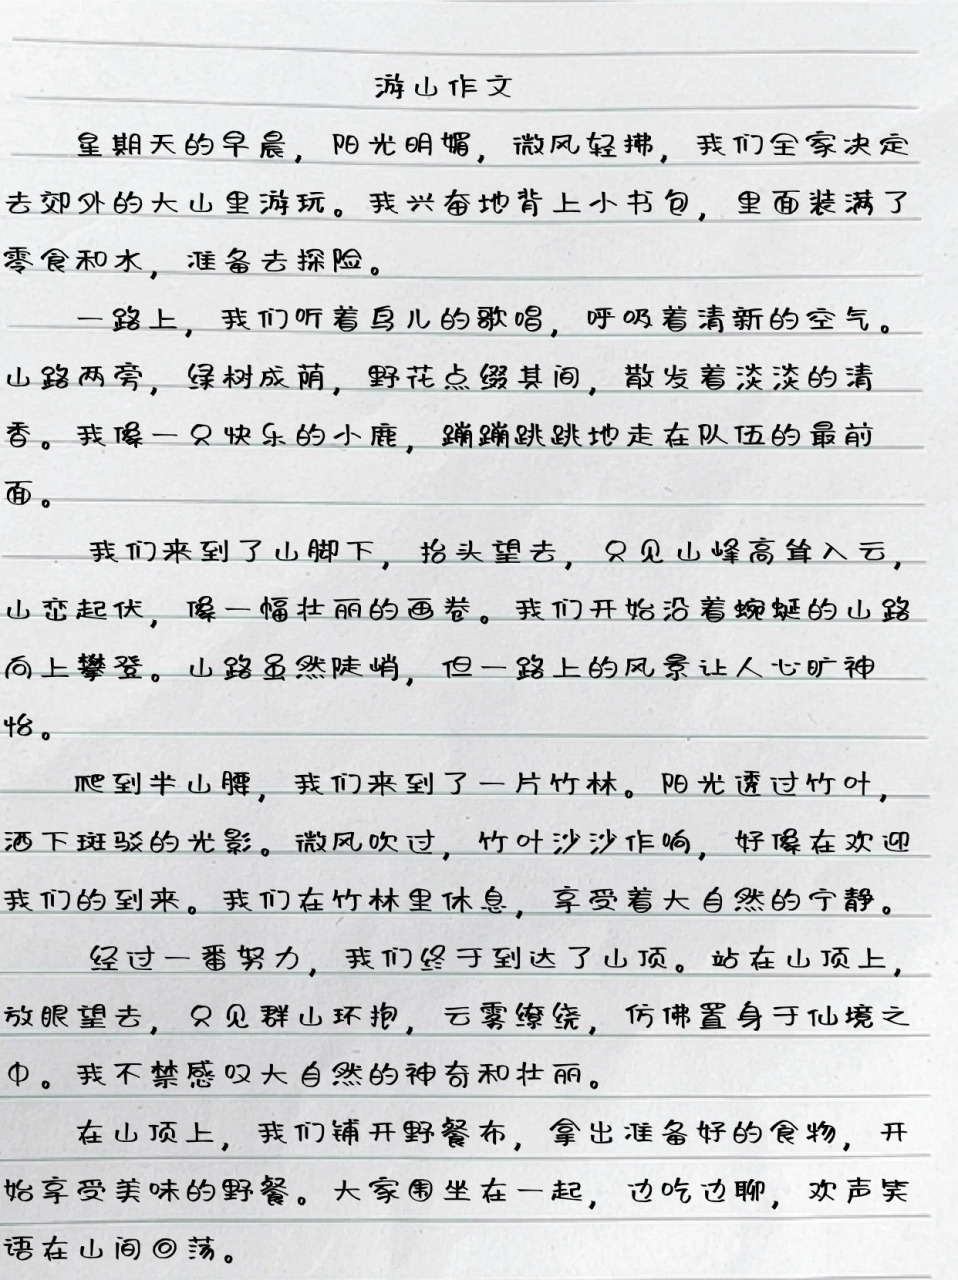 游山作文
星期天的早晨，阳光明媚，微风轻拂，我们全家决定
去郊外的大山里游玩。我兴奋地背上小书包，里面装满了
零食和水，准备去探险。
一路上，我们听着鸟儿的歌唱，呼吸着清新的空气。
山路两旁，绿树成荫，野花点缀其间，散发着淡淡的清
香。我像一只快乐的小鹿，蹦蹦跳跳地走在队伍的最前
面。
我们来到了山脚下，抬头望去，只见山峰高耸入云，
山峦起伏，像一幅壮丽的画卷。我们开始沿着蜿蜒的山路
向上攀登。山路虽然陡峭，但一路上的风景让人心旷神
怡。
爬到半山腰，我们来到了一片竹林。阳光透过竹叶，
洒下斑驳的光影。微风吹过，竹叶沙沙作响，好像在欢迎
我们的到来。我们在竹林里休息，享受着大自然的宁静。
经过一番努力，我们终于到达了山顶。站在山顶上，
放眼望去，只见群山环抱，云雾缭绕，仿佛置身于仙境之
中。我不禁感叹大自然的神奇和壮丽。
在山顶上，我们铺开野餐布，拿出准备好的食物，开
始享受美味的野餐。大家围坐在一起，边吃边聊，欢声笑
语在山间回荡。